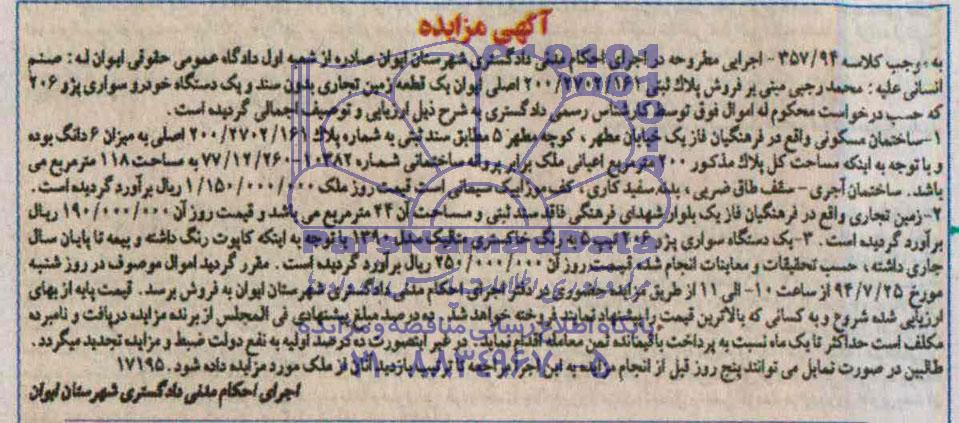 آگهی مزایده
به موجب کلاسه ۳۵۷/۹۴ - اجرایی مطروحه در اجرای احکام مدنی دادگستری شهرستان ایوان صادره از شعبه اول دادگاه عمومی حقوقی ایوان له : صنم
انسانی علیه : محمد رجبی مبنی بر فروش پلاک ثبتی ۲۰۰/۲۷۰۲/۱۶۱ اصلی ایوان یک قطعه زمین تجاری بدون سند و یک دستگاه خودرو سواری پژو ۲۰۶
که حسب درخواست محکوم له اموال فوق توسط کارشناس رسمی دادگستری به شرح ذیل ارزیابی و توصیف اجمالی گردیده است .
۱-ساختمان مسکونی واقع در فرهنگیان فاز یک خیابان مطهر ، کوچه مطهر ۵ مطابق سند ثبتی به شماره پلاک ۲۰۰/۲۷۰۲/۱۶۱ اصلی به میزان ۶ دانگ بوده
و با توجه به اینکه مساحت کل پلاک مذکور ۲۰۰ مترمربع اعیانی ملک برابر پروانه ساختمانی شماره ۱۰۳۸۲-۷۷/۱۲/۲۶۰ به مساحت ۱۱۸ مترمربع می
باشد . ساختمان آجری - سقف طاق ضربی ، بدنه سفید کاری ، کف موزاییک سیمانی است قیمت روز ملک ۱/۱۵۰/۰۰۰/۰۰۰ ریال برآورد گردیده است .
۲-زمین تجاری واقع در فرهنگیان فاز یک بلوار شهدای فرهنگی فاقد سند ثبتی و مساحت آن ۲۴ مترمربع می باشد و قیمت روز آن ۱۹۰/۰۰۰/۰۰۰ ریال
برآورد گردیده است . ۳-یک دستگاه سواری پژو ۲۰۶ تیپ ۵ به رنگ خاکستری متالیک مدل ۱۳۹۰ با توجه به اینکه کاپوت رنگ داشته و بیمه تا پایان سال
جاری داشته ، حسب تحقیقات و معاینات انجام شده قیمت روز آن ۲۵۰/۰۰۰/۰۰۰ ریال برآورد گردیده است . مقرر گردید اموال موصوف در روز شنبه
مورخ ۹۴/۷/۲۵ از ساعت ۱۰- الی ۱۱ از طریق مزایده حضوری در دفتر اجرای احکام مدنی دادگستری شهرستان ایوان به فروش برسد . قیمت پایه از بهای
ارزیابی شده شروع و به کسانی که بالاترین قیمت را پیشنهاد نمایند فروخته خواهد شد . ده درصد مبلغ پیشنهادی فی المجلس از برنده مزایده دریافت و نامبرده
مکلف است حداکثر تا یک ماه نسبت به پرداخت باقیمانده ثمن معامله اقدام نماید . در غیر اینصورت ده درصد اولیه به نفع دولت ضبط و مزایده تجدید میگردد .
طالبین در صورت تمایل می توانند پنج روز قبل از انجام مزایده به این اجرا مراجعه تا ترتیب بازدید آنان از ملک مورد مزایده داده شود . ۱۷۱۹۵
اجرای احکام مدنی دادگستری شهرستان ایوان
پایگاه اطلاع رسانی مناقصه و مزایده
۰۲۱-۸۸۳۴۹۶۷۰-۵